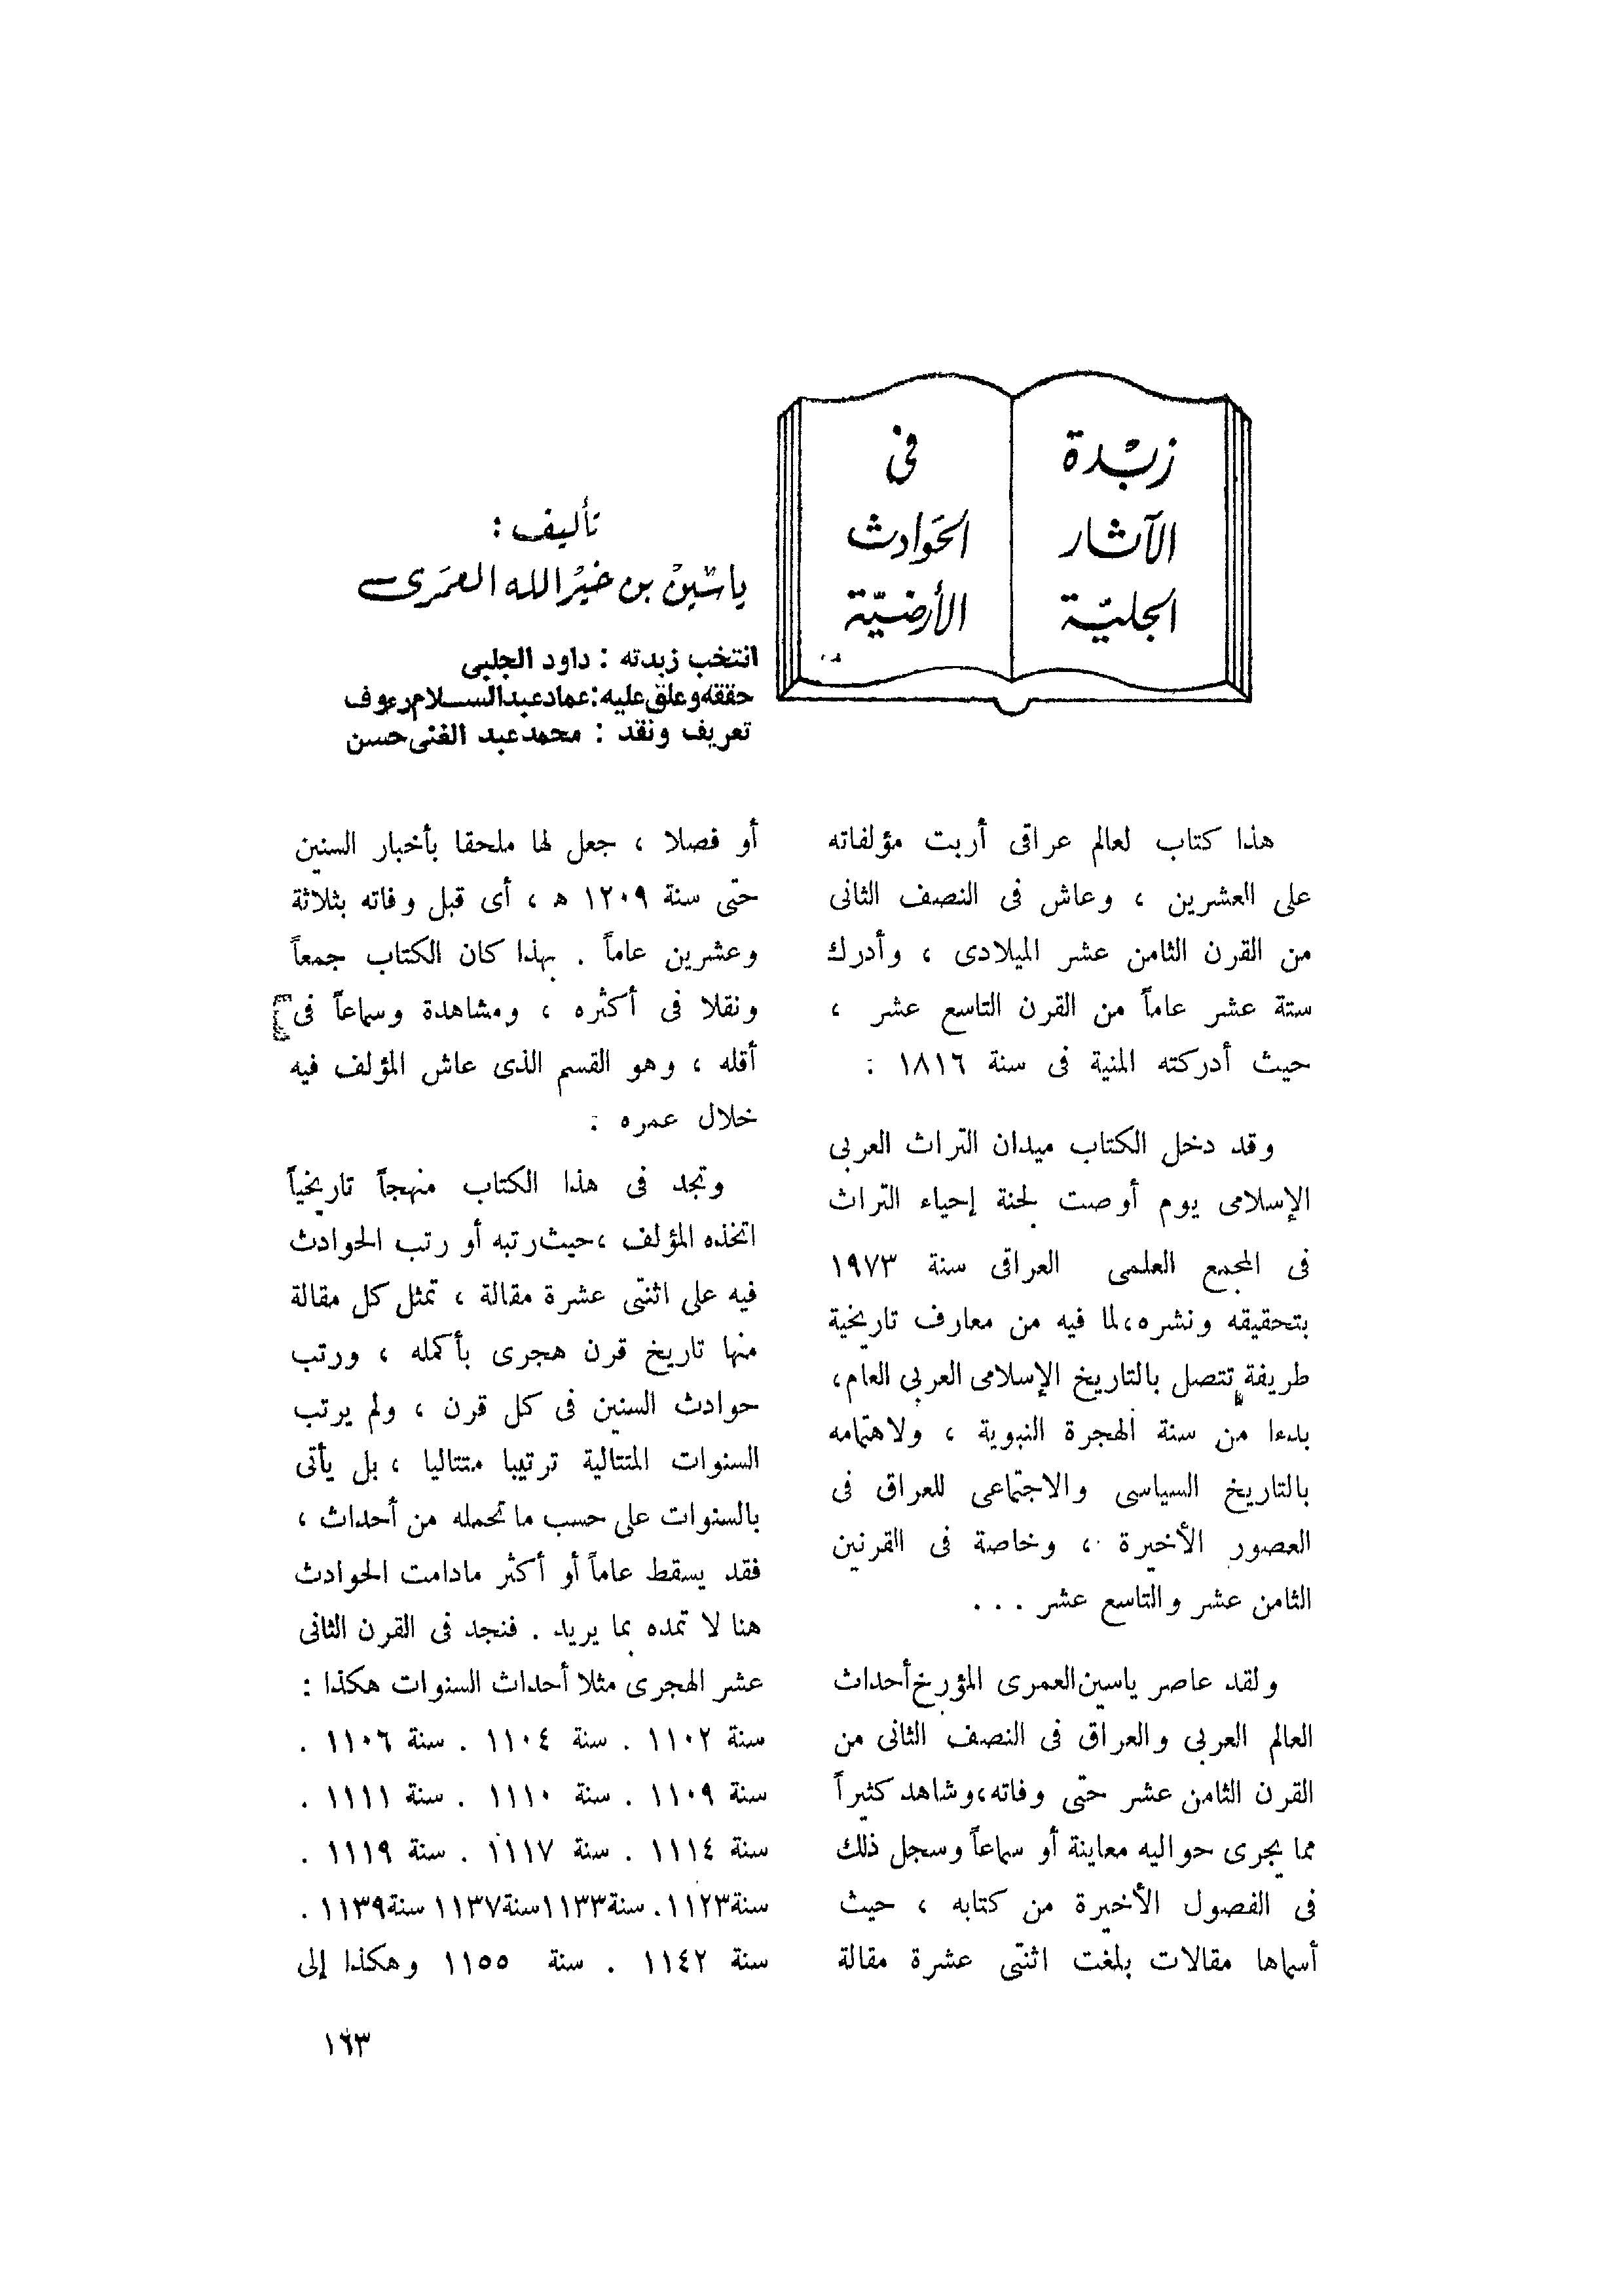 زبدة
الآثار
الجليّة
فى
الحوادث
الأرضيّة
تأليف :
ياسين بن خير الله العمرى
انتخب زبدته : داود الجلبى
حققه وعلق عليه : عماد عبد السلام رءوف
تعريف ونقد : محمد عبد الغنى حسن
هذا كتاب لعالم عراقى أربت مؤلفاته
على العشرين ، وعاش فى النصف الثانى
من القرن الثامن عشر الميلادى ، وأدرك
ستة عشر عاماً من القرن التاسع عشر ،
حيث أدركته المنية فى سنة ١٨١٦ .
وقد دخل الكتاب ميدان التراث العربى
الإسلامى يوم أوصت لجنة إحياء التراث
فى المجمع العلمى العراقى سنة ١٩٧٣
بتحقيقه ونشره، لما فيه من معارف تاريخية
طريفة تتصل بالتاريخ الإسلامى العربى العام،
بدءا من سنة الهجرة النبوية ، ولاهتمامه
بالتاريخ السياسى والاجتماعى للعراق فى
العصور الأخيرة ، وخاصة فى القرنين
الثامن عشر والتاسع عشر . . .
ولقد عاصر ياسين العمرى المؤرخ أحداث
العالم العربى والعراق فى النصف الثانى من
القرن الثامن عشر حتى وفاته، وشاهد كثيراً
مما يجرى حواليه معاينة أو سماعاً وسجل ذلك
فى الفصول الأخيرة من كتابه ، حيث
أسماها مقالات بلغت اثنتى عشرة مقالة
أو فصلا ، جعل لها ملحقا بأخبار السنين
حتى سنة ١٢٠٩ ه ، أى قبل وفاته بثلاثة
وعشرين عاماً . بهذا كان الكتاب جمعاً
ونقلا فى أكثره ، ومشاهدة وسماعاً فى
أقله ، وهو القسم الذى عاش المؤلف فيه
خلال عمره .
وتجد فى هذا الكتاب منهجاً تاريخياً
اتخذه المؤلف ، حيث رتبه أو رتب الحوادث
فيه على اثنتى عشرة مقالة ، تمثل كل مقالة
منها تاريخ قرن هجرى بأكمله ، ورتب
حوادث السنين فى كل قرن ، ولم يرتب
السنوات المتتالية ترتيبا متتاليا ، بل يأتى
بالسنوات على حسب ما تحمله من أحداث ،
فقد يسقط عاماً أو أكثر مادامت الحوادث
هنا لا تمده بما يريد . فنجد فى القرن الثانى
عشر الهجرى مثلا أحداث السنوات هكذا :
سنة ١١٠٢ . سنة ١١٠٤ . سنة ١١٠٦ .
سنة ١١٠٩ . سنة ١١١٠ . سنة ١١١١ .
سنة ١١١٤ . سنة ١١١٧ . سنة ١١١٩ .
سنة ١١٢٣ . سنة ١١٣٣ سنة ١١٣٧ سنة ١١٣٩ .
سنة ١١٤٢ . سنة ١١٥٥ وهكذا إلى
١٦٣